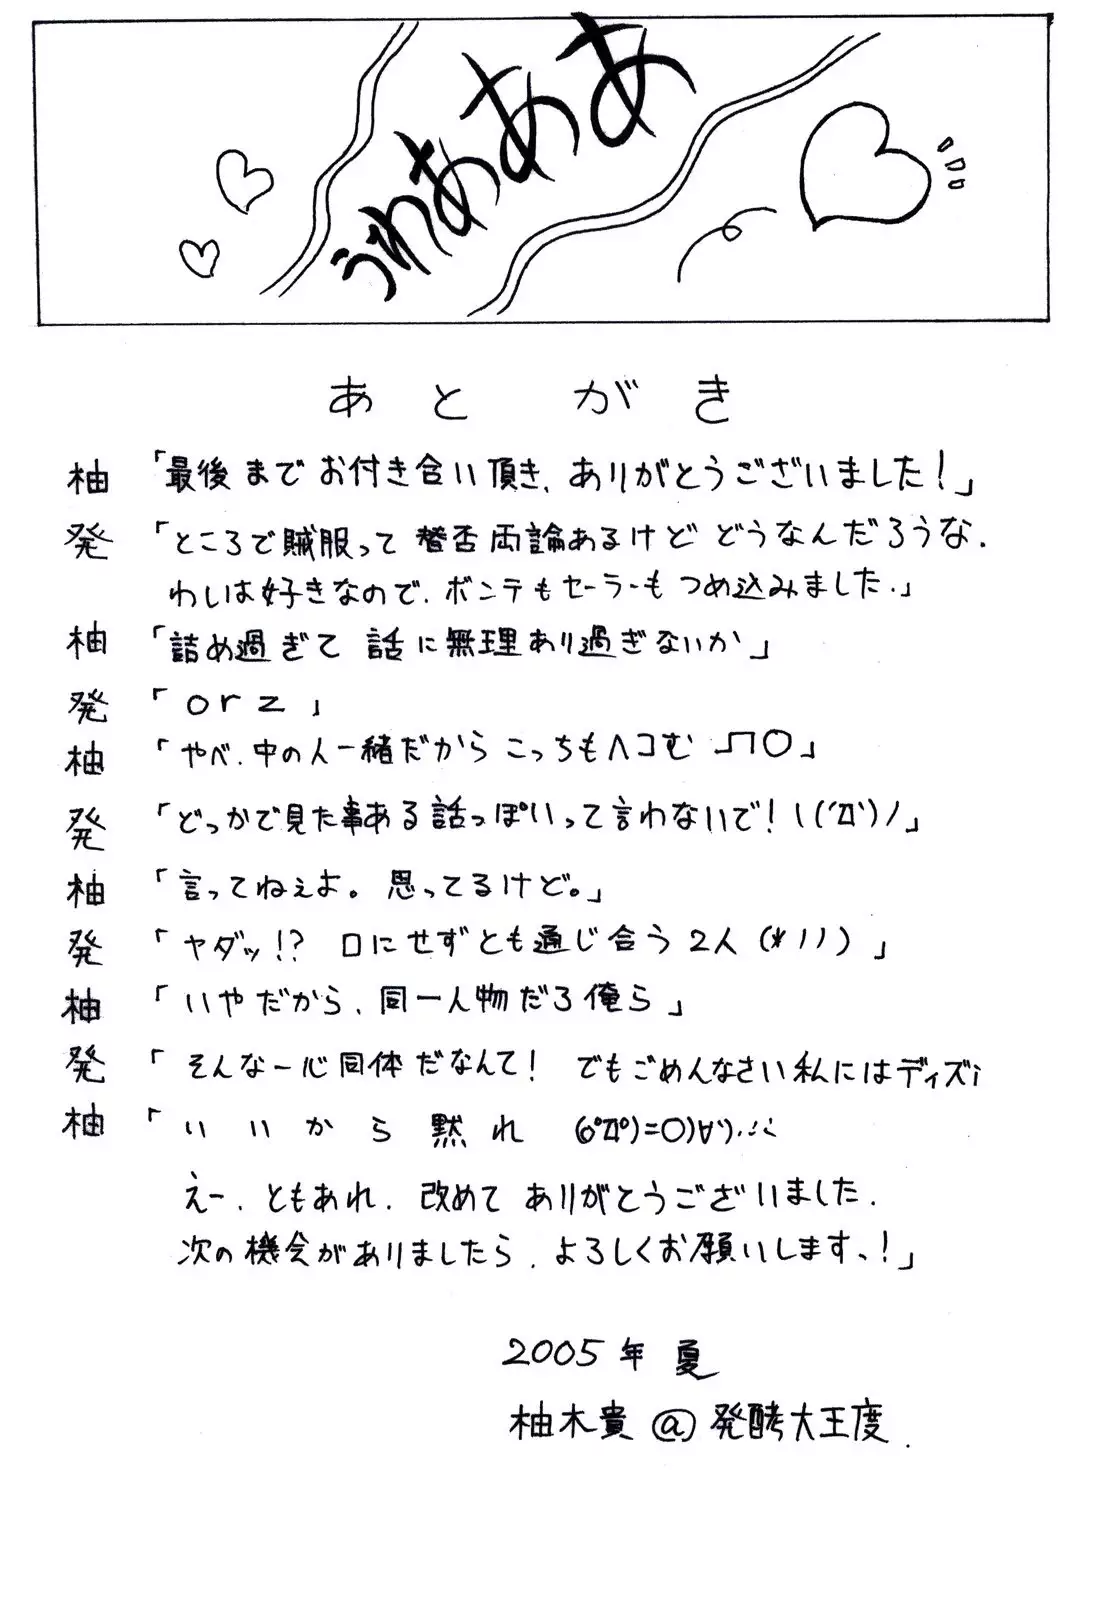 うわあああ
あとがき
柚「最後までお付き合い頂き、ありがとうございました！」
発「ところで賊服って賛否両論あるけどどうなんだろうな.
わしは好きなので、ボンテもセーラーもつめ込みました.」
柚「詰め過ぎて話に無理あり過ぎないか」
発「orz」
柚「やべ、中の人一緒だからこっちもヘコむ _ΠO」
発「どっかで見た事ある話っぽいって言わないで！ヽ(´Д`)ノ」
柚「言ってねぇよ。思ってるけど。」
発「ヤダッ!? 口にせずとも通じ合う2人(*ノノ)」
柚「いやだから、同一人物だろ俺ら」
発「そんな一心同体だなんて！ でもごめんなさい私にはディズi
柚「いいから黙れ (oﾟДﾟ)=O)∀`).:∴
えー、ともあれ、改めてありがとうございました.
次の機会がありましたら、よろしくお願いします、！」
2005年 夏
柚木貴@発酵大王度.